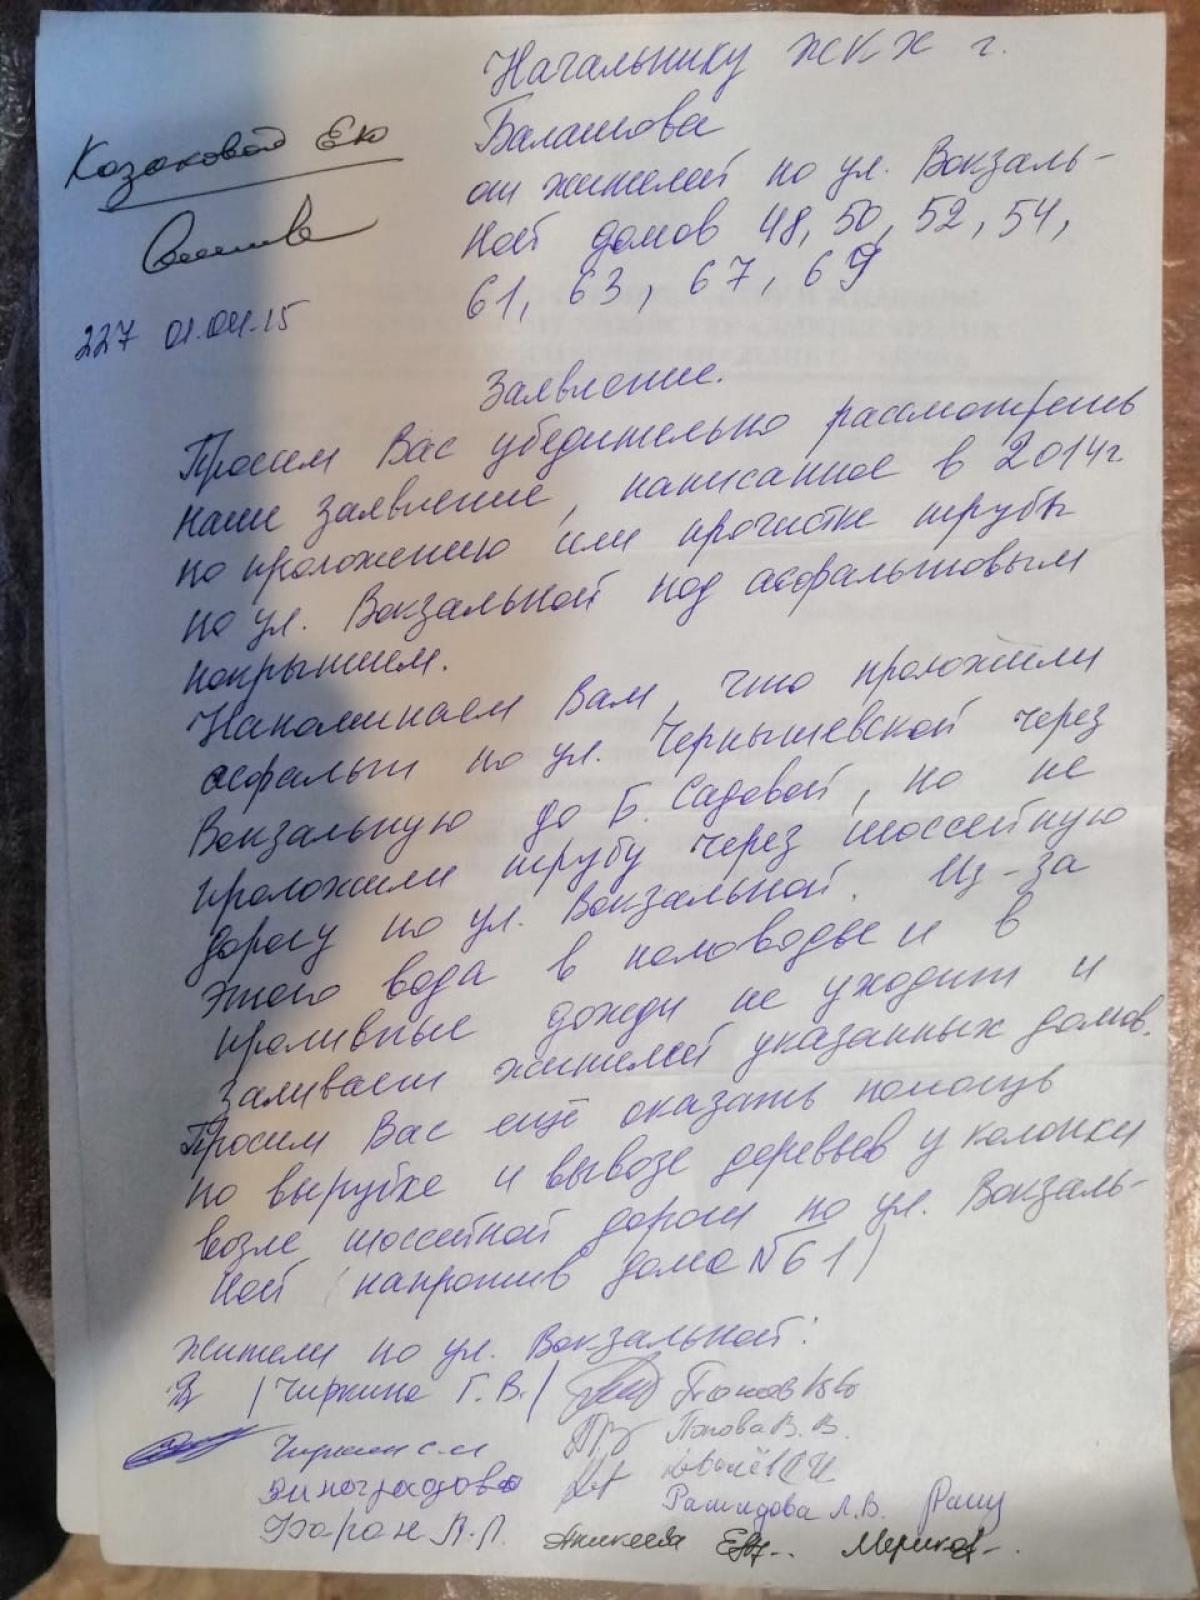 Начальнику ЖКХ г.
Балашова
от жителей по ул. Вокзаль-
ной домов 48, 50, 52, 54,
61, 63, 67, 69
Козаковой Е Ю
227 01.04.15
Заявление.
Просим Вас убедительно рассмотреть
наше заявление, написанное в 2014г.
по проложению или прочистке трубы
по ул. Вокзальной под асфальтовым
покрытием.
Напоминаем Вам, что проложили
асфальт по ул. Чернышевской через
Вокзальную до Б. Садовой, но не
проложили трубу через шоссейную
дорогу по ул. Вокзальной. Из-за
этого вода в половодье и в
проливные дожди не уходит и
заливает жителей указанных домов.
Просим Вас ещё оказать помощь
по вырубке и вывозе деревьев у колонки
возле шоссейной дороги по ул. Вокзаль-
ной (напротив дома №61)
Жители по ул. Вокзальной:
/Чиркина Г. В./ Попов
Чиркин С. И Попова В. В.
Виноградова Ковалёв
Фаран А. Л. Рашидова Л. В.
Аникеева